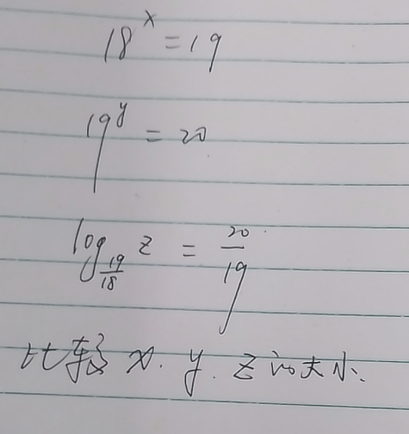 18^x = 19
19^y = 20
log_{19/18} z = 20/19
比较 x. y. z 的大小.